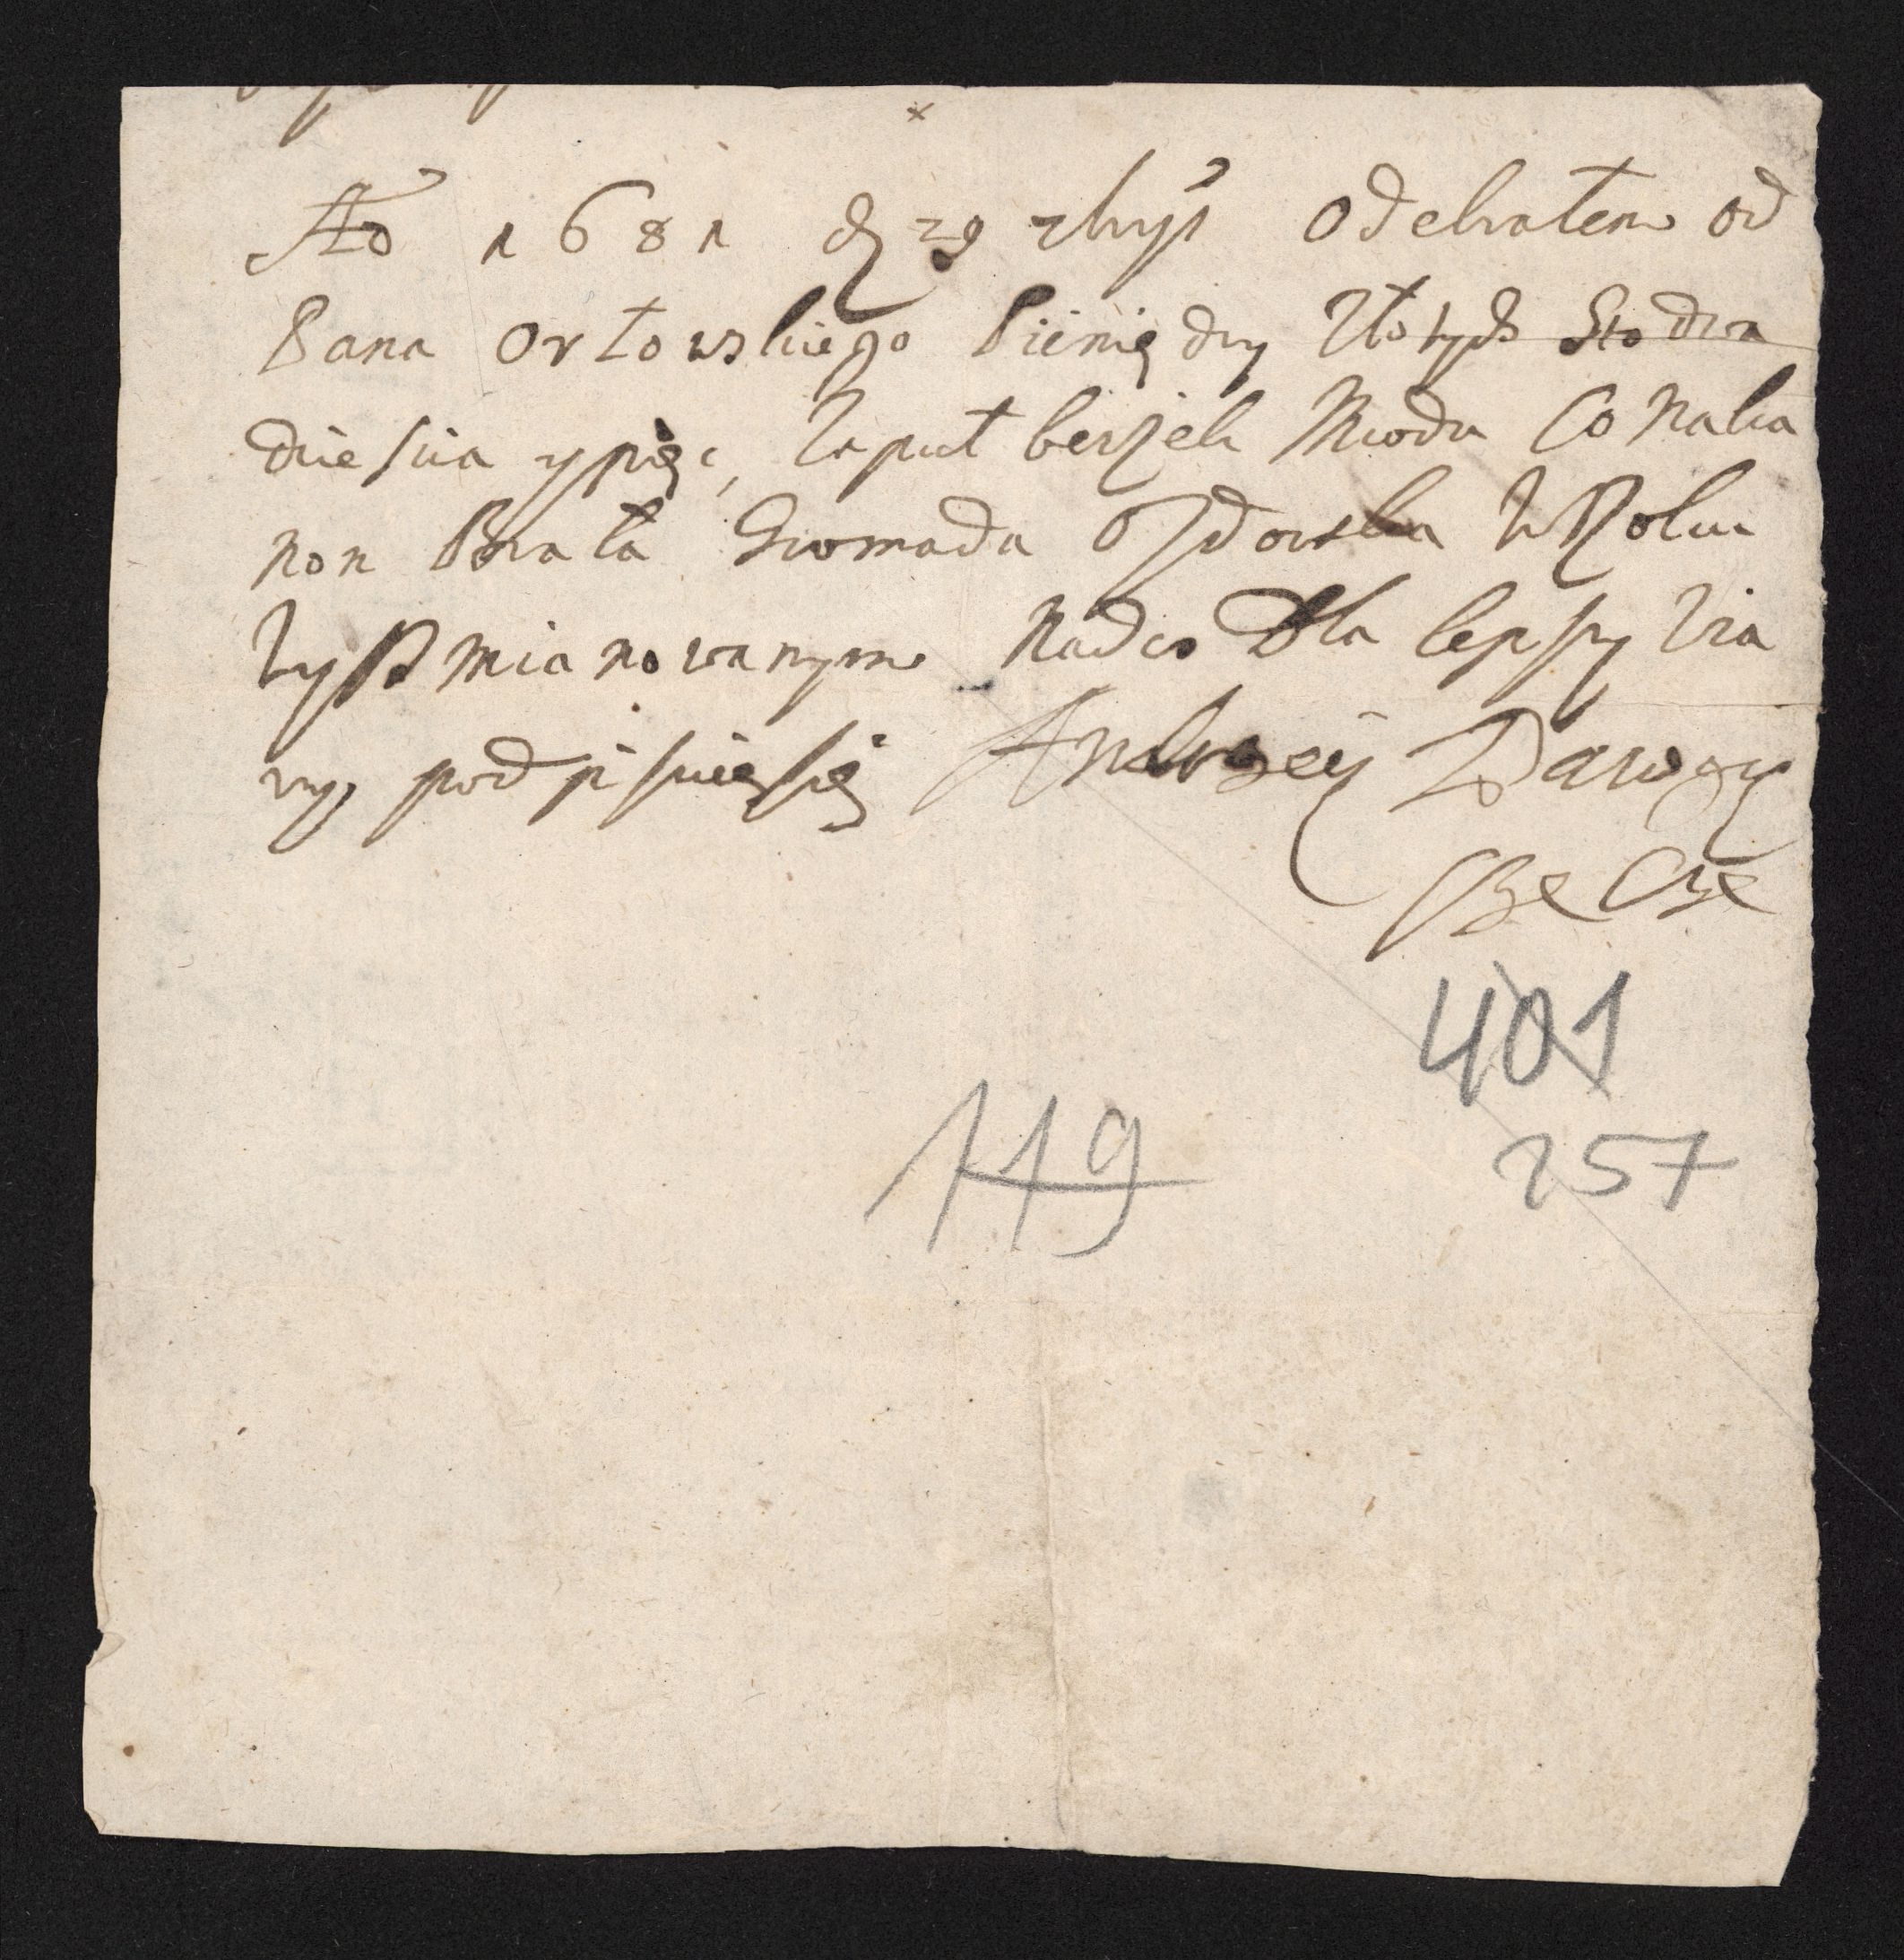 Ao 1681 d 29 Odebrałem od
Pana Orłowskiego Pieniędzy Złotych Sto dwa
dziescia y pięc, za puł beczek Miodu Co na
non Brała Gromada w Roku
wysz mianowanym na dla lepszy wia
ry, podpisuię się Andrzey
401
119
257